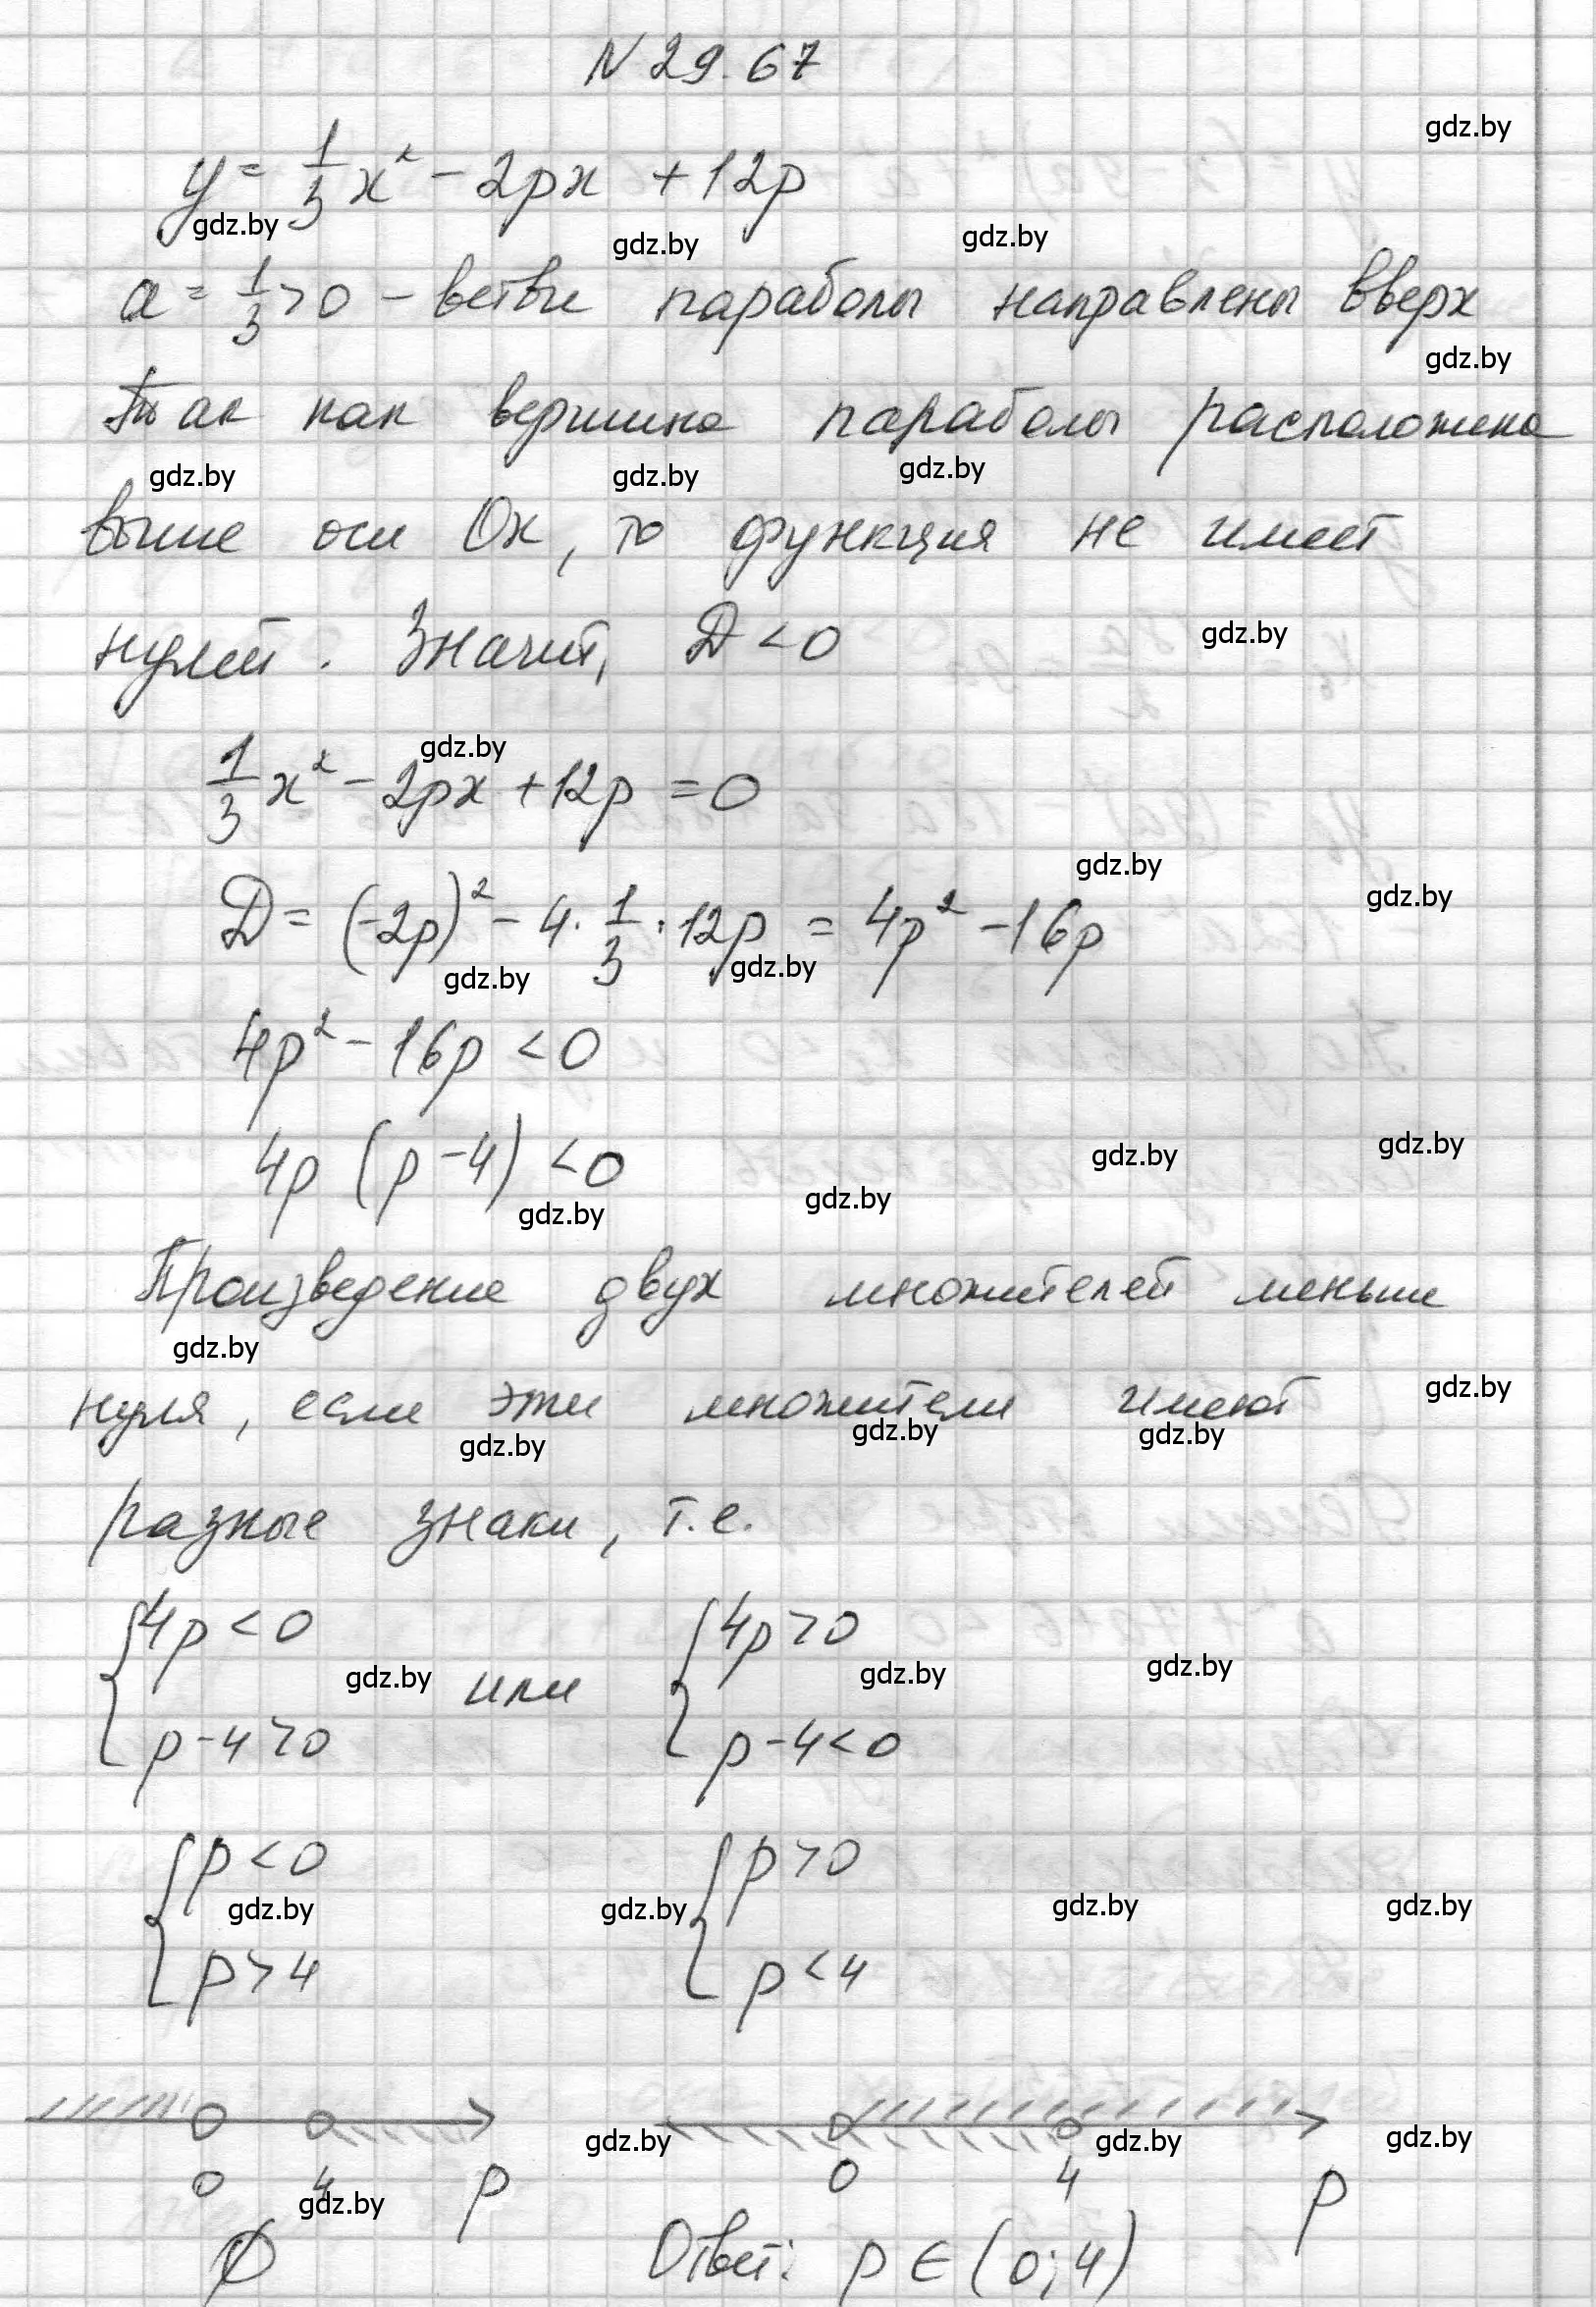 N 29.67
gdz.by
y = 1/3 x² - 2px + 12p
gdz.by gdz.by gdz.by
a = 1/3 > 0 - ветви параболы направлены вверх
gdz.by
Так как вершина параболы расположена
gdz.by gdz.by gdz.by
выше оси Ox, то функция не имеет
нулей. Значит, D < 0
gdz.by
gdz.by
1/3 x² - 2px + 12p = 0
gdz.by gdz.by
D = (-2p)² - 4 · 1/3 · 12p = 4p² - 16p
gdz.by gdz.by
4p² - 16p < 0
4p (p - 4) < 0
gdz.by gdz.by
gdz.by gdz.by
Произведение двух множителей меньше
gdz.by
нуля, если эти множители имеют
gdz.by
gdz.by gdz.by gdz.by
разные знаки, т.е.
{4p < 0 или {4p > 0
gdz.by gdz.by gdz.by
p - 4 > 0 p - 4 < 0
{p < 0 {p > 0
gdz.by gdz.by gdz.by gdz.by
p > 4 p < 4
gdz.by gdz.by gdz.by
0 4 p 0 4 p
gdz.by
∅ Ответ: p ∈ (0; 4)